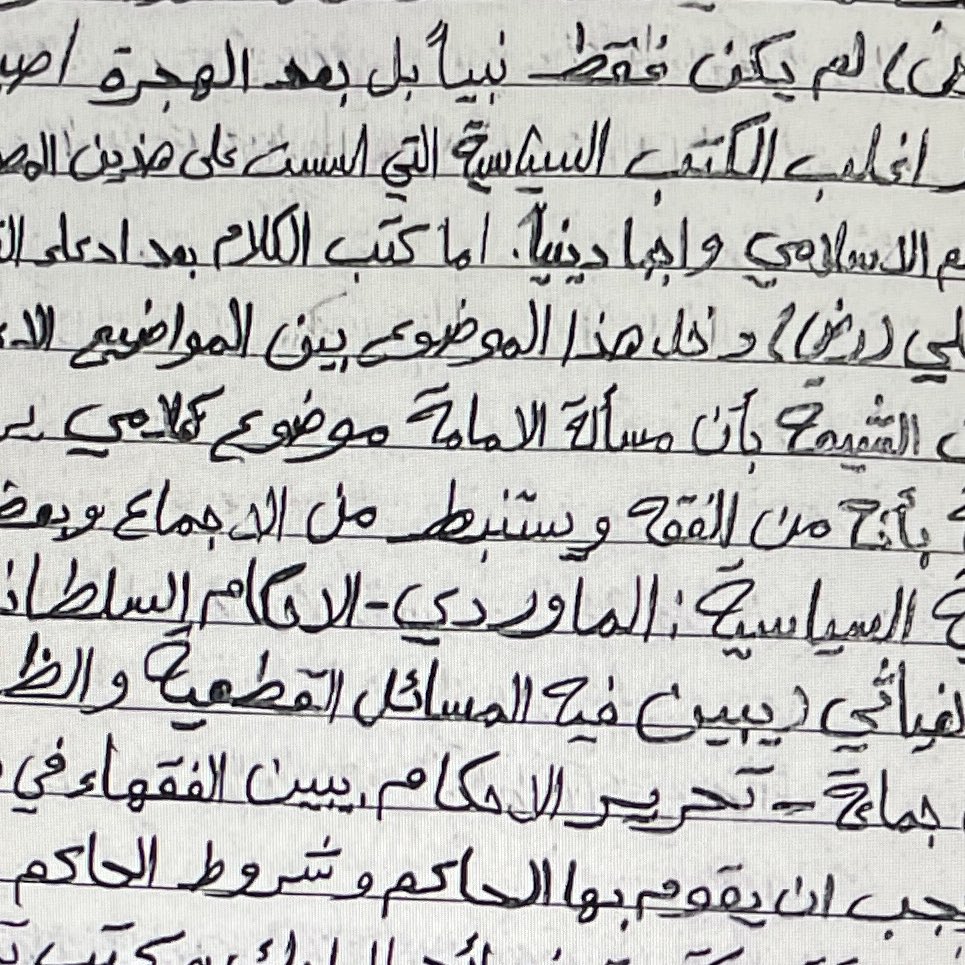 لم يكن فقط نبياً بل بعد الهجرة
اغلب الكتب السياسية التي اسست على هذين
الاسلامي وانها دينياً. اما كتب الكلام بعد ادعاء
(رض)) دخل هذا الموضوع بين المواضيع
الشيعة بأن مسألة الامامة موضوع كلامي
بأنه من الفقه ويستنبط من الاجماع وبعض
السياسية: الماوردي-الاحكام السلطان
الغياثي (يبين) فيه المسائل القطعية والظ
جماعة - تحرير الاحكام يبين الفقهاء في
يجب ان يقوم بها الحاكم وشروط الحاكم